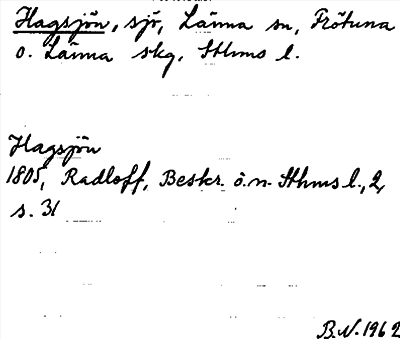 Hagsjön, sjö, Länna sn, Frötuna
o. Länna skg, Sthms l.
Hagsjön
1805, Radloff, Beskr. ö. n. Sthms l., 2,
s. 31
B.N. 1962